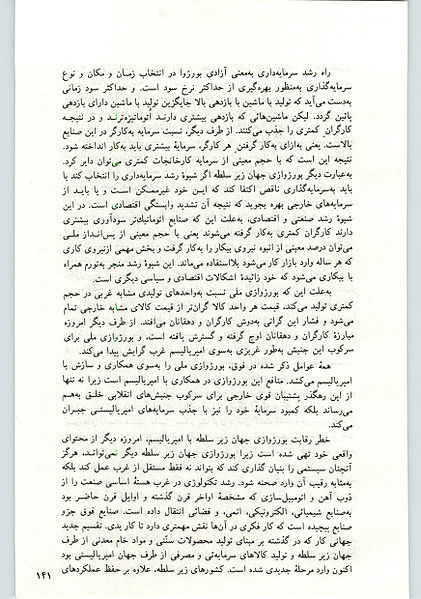 راه رشد سرمایه‌داری به‌معنی آزادی بورژوا در انتخاب زمـان و مکان و نوع
سرمایه‌گذاری به‌منظور بهره‌گیری از حداکثر نرخ سود است. و حداکثر سود زمانی
به‌دست می‌آید که تولید با ماشین با بازدهی بالا جایگزین تولید با ماشین دارای بازدهی
پائین گردد. لیکن ماشین‌هائی که بازدهی بیشتری دارنـد اتوماتیزه‌ترنـد و در نتیجـه
کارگران کمتری را جذب می‌کنند. از طرف دیگر، نسبت سرمایه به‌کارگر در این صنایع
بالاست. یعنی به‌ازای به‌کار گرفتن هر کارگر، سرمایهٔ بیشتری باید به‌کار انداخته شود.
نتیجه این است که با حجم معینی از سرمایه کارخانجات کمتری می‌توان دایر کرد.
به‌عبارت دیگر بورژوازی جهان زیر سلطه اگر شیوهٔ رشد سرمایه‌داری را انتخاب کند یا
باید به‌سرمایه‌گذاری ناقص اکتفا کند که ایـن خود غیرممکـن اسـت و یا بایـد از
سرمایه‌های خارجی بهره بجوید که نتیجه آن تشدید وابستگی اقتصادی است. در این
شیوهٔ رشد صنعتی و اقتصادی، به‌علت این که صنایع اتوماتیک‌تر سودآوری بیشتری
دارند کارگران کمتری به‌کار گرفته می‌شوند یعنی با حجم معینی از پس‌انـداز ملـی
می‌توان درصد معینی از انبوه نیروی بیکار را به‌کار گرفت و بخش مهمی ازنیروی کاری
که هر ساله وارد بازار کار می‌شود بلااستفاده می‌ماند. این شیوهٔ رشد منجر به‌تورم همراه
با بیکاری می‌شود که خود زائیدهٔ اشکالات اقتصادی و سیاسی دیگری است.
به‌علت این که بورژوازی ملی نسبت به‌واحدهای تولیدی مشابه غربی در حجم
کمتری تولید می‌کند، قیمت هر واحد کالا گران‌تر از قیمت کالای مشابه خارجی تمام
می‌شود و فشار این گرانی به‌دوش کارگران و دهقانان می‌افتد. از طرف دیگر امروزه
مبارزهٔ کارگران و دهقانان اوج گرفته و گسترش یافته است، و بورژوازی ملی برای
سرکوب این جنبش به‌طور غریزی به‌سوی امپریالیسم غرب گرایش پیدا می‌کند.
همهٔ عوامل ذکر شده در فوق، بورژوازی ملی را به‌سوی همکاری و سازش با
امپریالیسم می‌کشد. منافع این بورژوازی در همکاری با امپریالیسم است زیرا نه تنها
از این رهگذر پشتیبان قوی خارجی برای سرکوب جنبش‌های انقلابی خلـق به‌هـم
می‌رساند بلکه کمبود سرمایهٔ خود را نیز با جذب سرمایه‌های امپریالیستـی جبـران
می‌کند.
خطر رقابت بورژوازی جهان زیر سلطه با امپریالیسم، امروزه دیگر از محتوای
واقعی خود تهی شده است زیرا بورژوازی جهان زیر سلطه دیگر نمی‌توانـد، هرگز
آنچنان سیستمی را بنیان گذاری کند که بتواند نه فقط مستقل از غرب عمل کند بلکه
به‌مثابه رقیب آن وارد صحنه شود. رشد تکنولوژی در غرب هستهٔ اساسی صنعت را از
ذوب آهن و اتومبیل‌سازی که مشخصهٔ اواخر قرن گذشته و اوایل قرن حاضـر بود
به‌صنایع شیمیائی، الکترونیکی، اتمی، و فضائی انتقال داده است. صنایع فوق جزو
صنایع پیچیده است که کار فکری در آن‌ها نقش مهمتری دارد تا کار یدی. تقسیم جدید
جهانی کار که در گذشته بر مبنای تولید محصولات سنّتی و مواد خام معدنی از طرف
جهان زیر سلطه و تولید کالاهای سرمایه‌ئی و مصرفی از طرف جهان امپریالیستی بود
اکنون وارد مرحلهٔ جدیدی شده است. کشورهای زیر سلطه، علاوه بر حفظ عملکردهای
۱۴۱